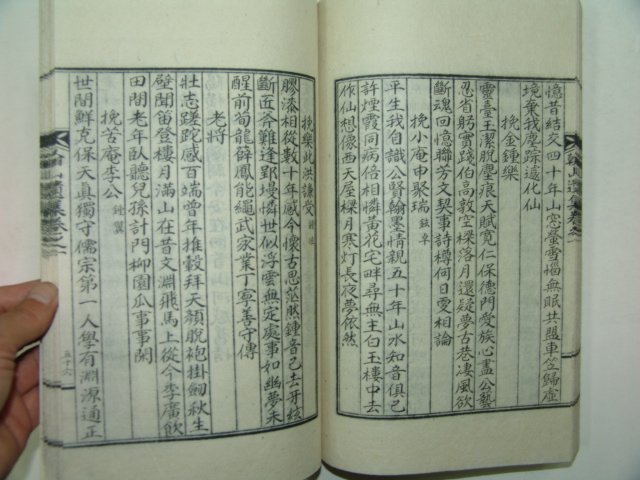 憶昔結交四十年山窓螢雪惱無眠共盟車笠歸虛
境棄我塵踪遽化仙
挽金鍾樂
靈臺玉潔脫塵痕天賦寬仁保德門受族心盡公藝
忍省躬實踐伯高敦空樑落月還疑夢古巷凄風欲
斷魂回憶聯芳文契事詩樽何日更相論
挽小庵申聚瑞
平生我自識公賢翰墨情親五十年山水知音俱已
許煙霞同病倍相憐黃花宅畔尋無主白玉樓中去
作仙想像西天屋樑月寒灯長夜夢依然
挽樂此洪謙受
膠漆相從數十年感今懷古思茫然鍾音已去牙絃
斷匠斧難逢郢墁憐世似浮雲無定處事如幽夢未
醒前荀龍薛鳳能繩武家業丁寧善守傳
老將
壯志蹉跎感百端曾年推轂拜天顏脫袍掛劒秋生
壁聞笛登樓月滿山在昔文淵飛馬上從今李廣飮
田間老年臥聽兒孫計門柳園瓜事事閑
挽苦庵李公 鍾翼
世間鮮克保天眞獨守儒宗第一人學有淵源通正
五十六